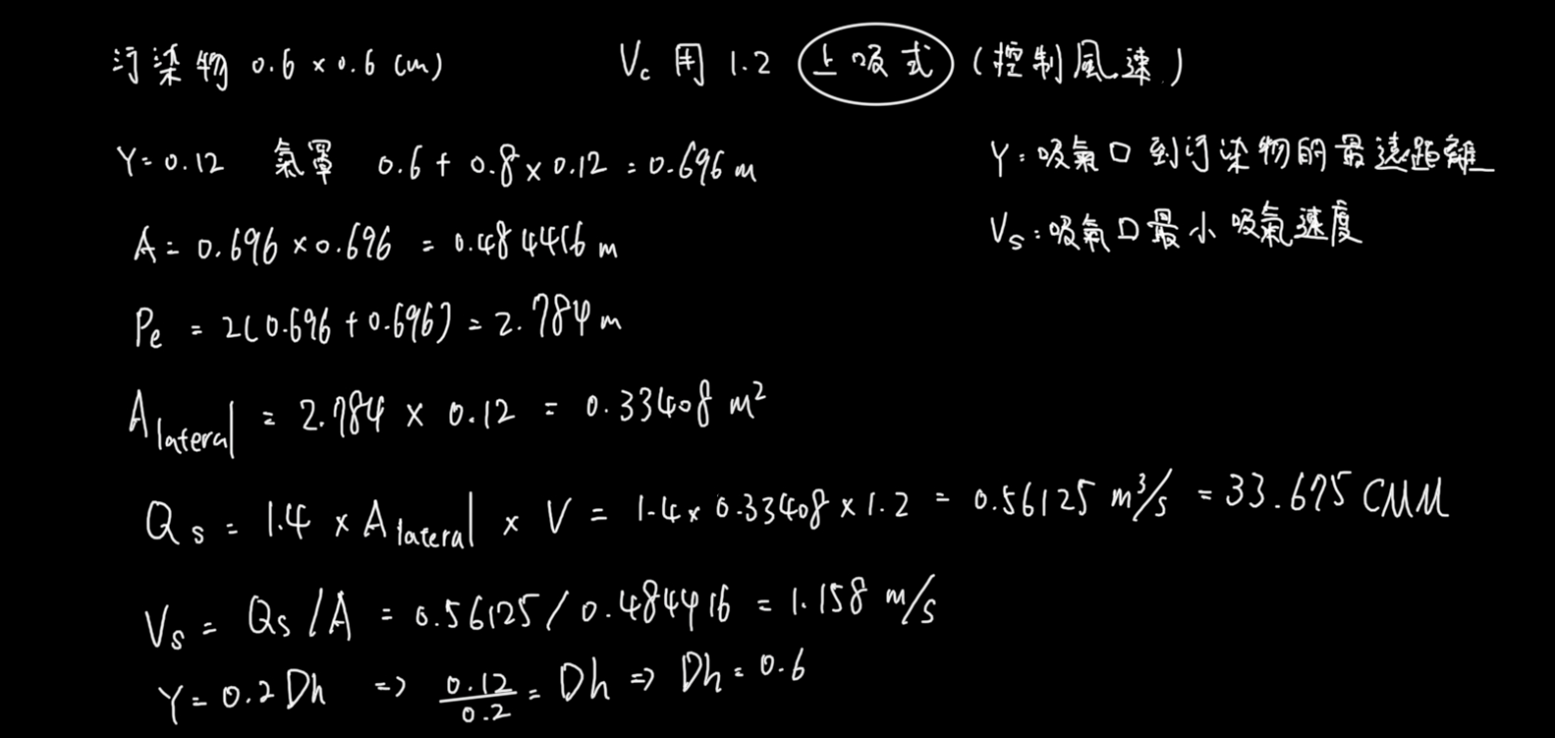 污染物 0.6 × 0.6 (m) Vc 用 1.2 上吸式 (控制風速)
Y = 0.12 氣罩 0.6 + 0.8 × 0.12 = 0.696 m
Y: 吸氣口到污染物的最遠距離
A = 0.696 × 0.696 = 0.484416 m
Vs: 吸氣口最小吸氣速度
Pe = 2(0.696 + 0.696) = 2.784 m
A lateral = 2.784 × 0.12 = 0.33408 m²
Qs = 1.4 × A lateral × V = 1.4 × 0.33408 × 1.2 = 0.56125 m³/s = 33.675 CMM
Vs = Qs / A = 0.56125 / 0.484416 = 1.158 m/s
Y = 0.2 Dh => 0.12/0.2 = Dh => Dh = 0.6